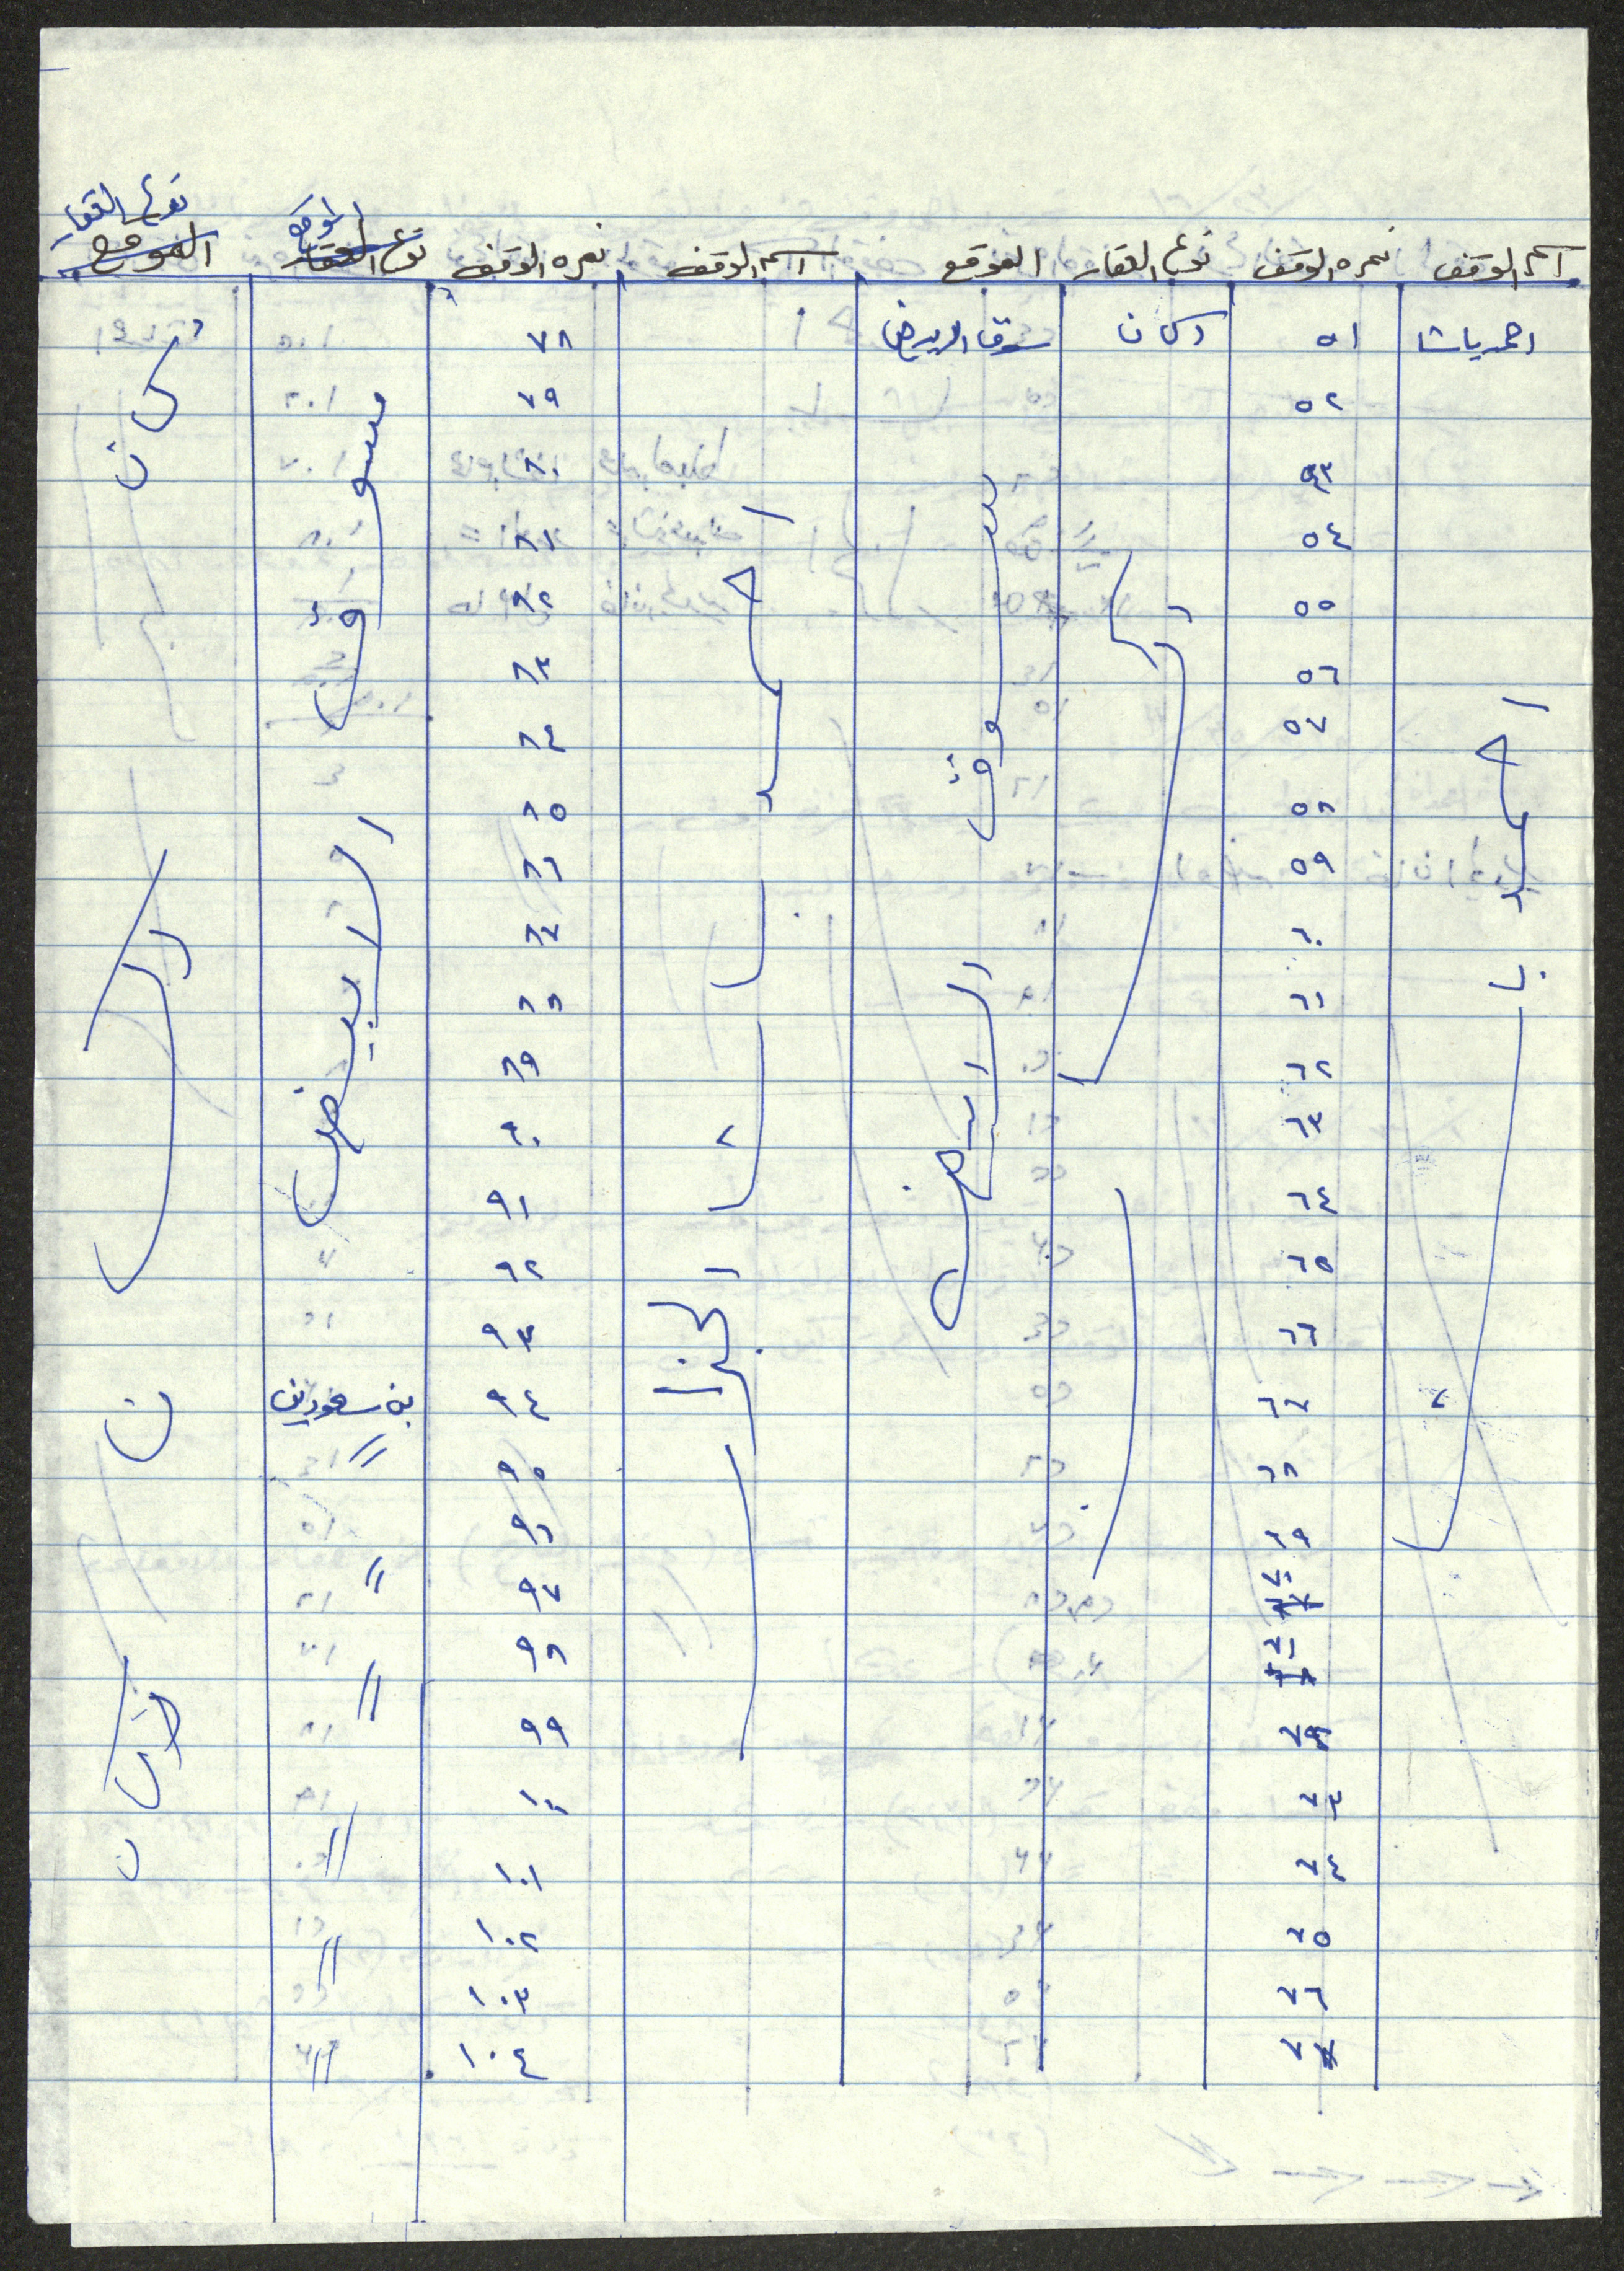 اسم الوقف نمره الوقف نوع العقار الموقع اسم الوقف نمره الوقف الموقع نوع العقار
احمد باشا ٥١ دكان سوق الابيض ٧٨
٥٢ ٧٩
٥٣ ٨٠
٥٤ ٨١
٥٥ ٨٢
٥٦ ٨٣
٥٧ ٨٤
٥٨ ٨٥
٥٩ ٨٦
٦٠ ٨٧
٦١ ٨٨
٦٢ ٨٩
٦٣ ٩٠
٦٤ ٩١
٦٥ ٩٢
٦٦ ٩٣
٦٧ ٩٤
٦٨ ٩٥ //
٦٩ ٩٦
٧٠ ٩٧ //
٧١ ٩٨ //
٧٢ ٩٩
٧٣ ١٠٠
٧٤ ١٠١ //
٧٥ ١٠٢ //
٧٦ ١٠٣
٧٧ ١٠٤ //
احمد باشا
دكان
سوق الابيض
احمد باشا الجزار
سوق الابيض
دكان
دكان
دكان